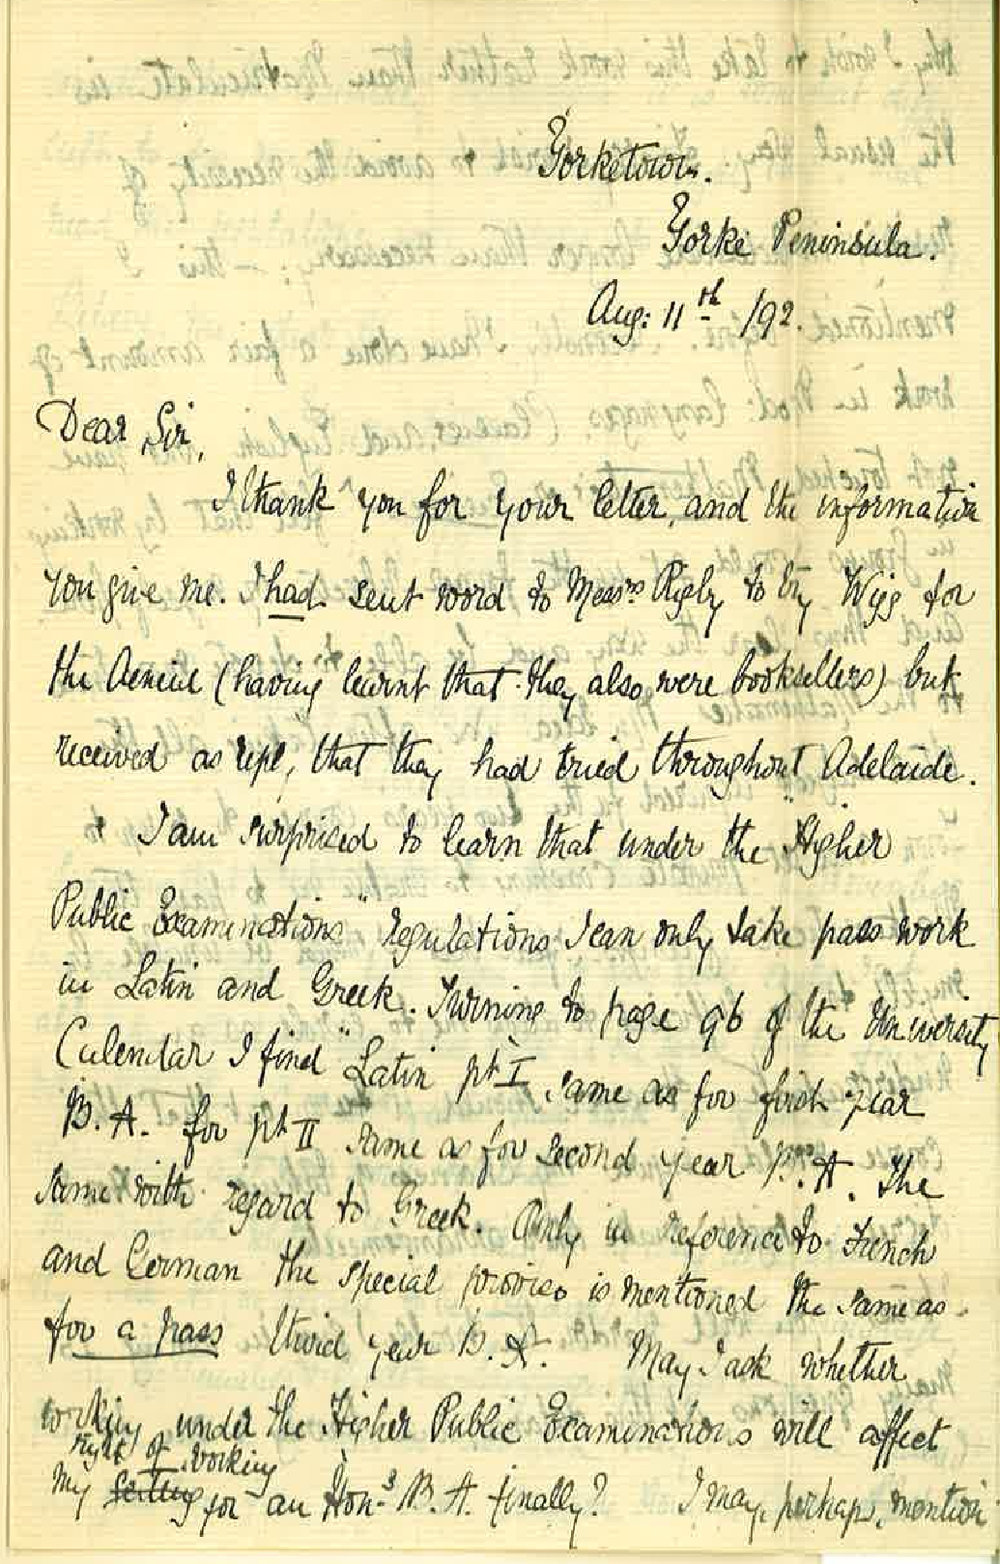 Yorketown.
Yorke Peninsula.
Aug: 11th /92.
Dear Sir,
I thank you for your letter, and the information
you give me. I had sent word to Messrs Rigby to try Wigg for
the Aeneid (having learnt that they also were booksellers) but
received as reply, that they had tried throughout Adelaide.
I am surprised to learn that under the "Higher
Public Examinations" regulations I can only take pass work
in Latin and Greek. Turning to page 96 of the University
Calendar I find "Latin pt I same as for first year
B.A. for pt II same as for second year B.A. The
same with regard to Greek. Only in reference to French
and German the special proviso is mentioned the same as
for a pass third year B.A. May I ask whether
working under the Higher Public Examinations will affect
right of working
my for an Hons B.A. finally? I may, perhaps, mention